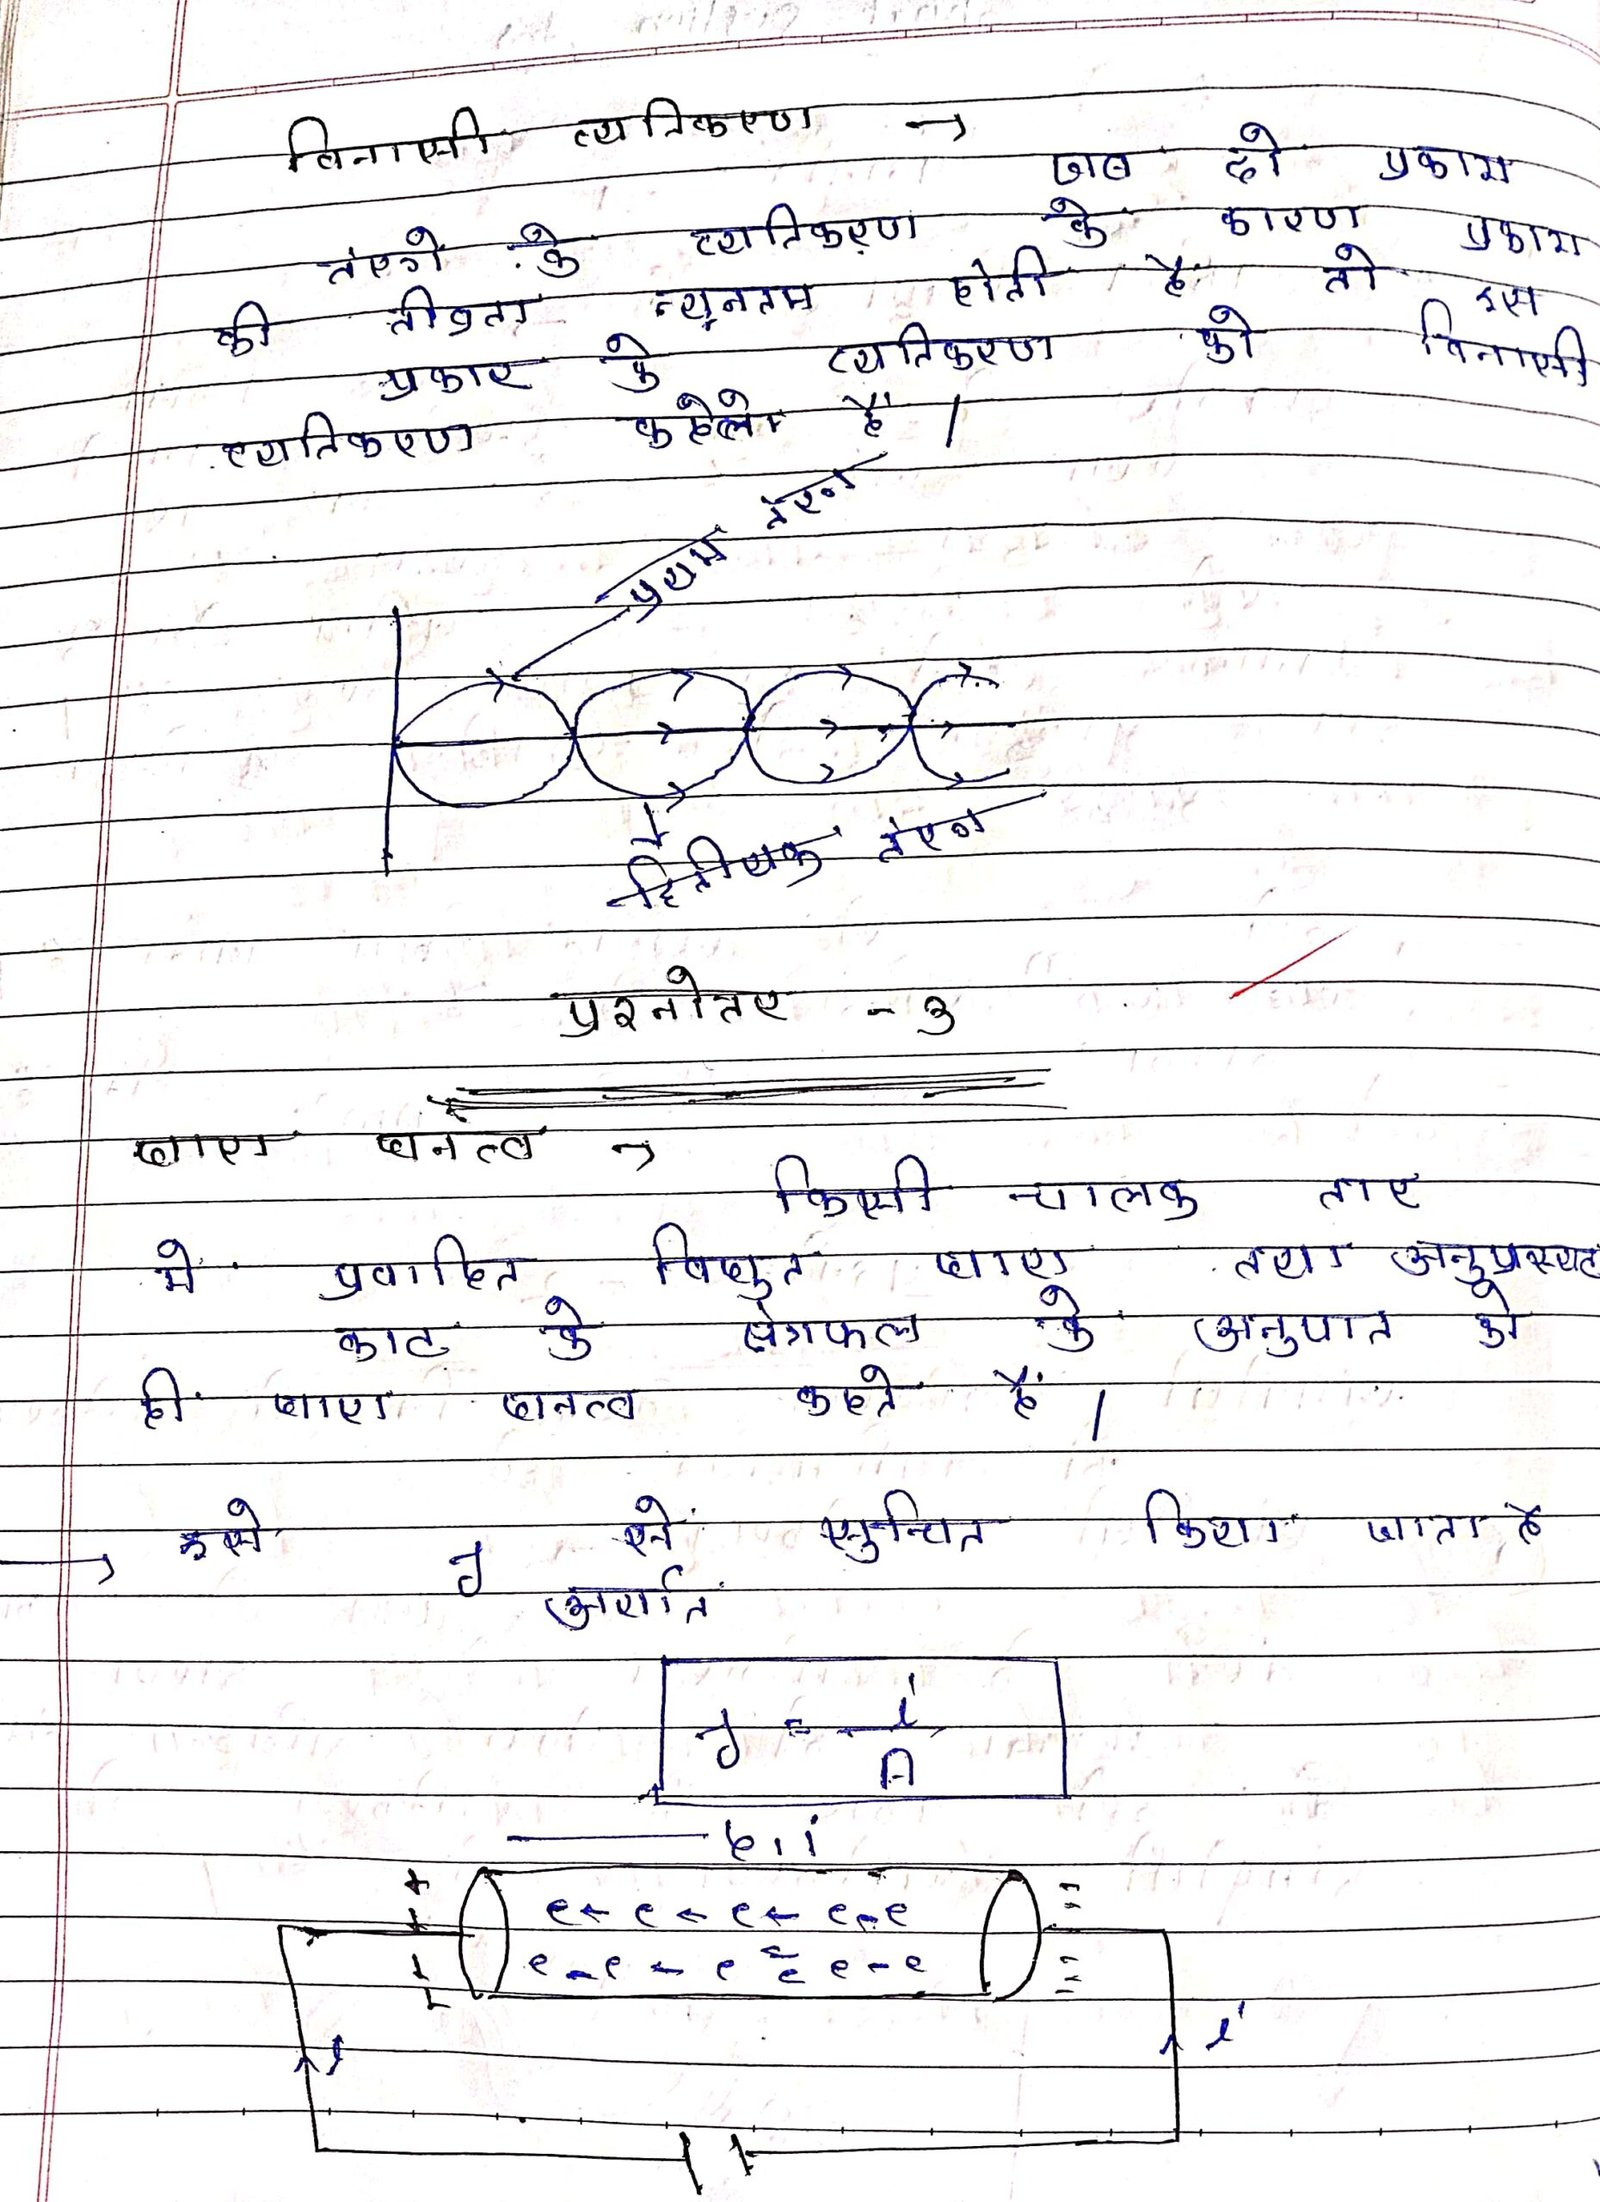 विनाशी व्यतिकरण →
जब दो प्रकाश
तंरगो के व्यतिकरण के कारण प्रकाश
की तीव्रता न्यूनतम होती है तो इस
प्रकार के व्यतिकरण को विनाशी
व्यतिकरण कहेते हैं।
प्रथम तंरग
द्वितीयक तंरग
प्रश्नोतर - 3
धारा घनत्व →
किसी चालक तार
मे प्रवाहित विधुत धारा तथा अनुप्रस्थ
काट के क्षेत्रफल के अनुपात को
ही धारा घनत्व कहते हैं।
→ इसे J से सुचित किया जाता है
अर्थात
J = i
A
+ e ← e ← e ← e - e =
+ e - e ← e e e - e =
i i